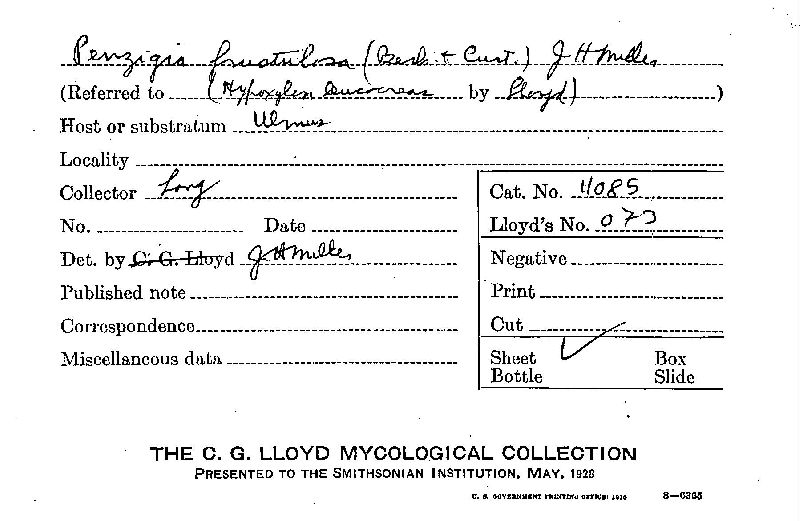 Penzigia frustulosa (Berk. + Curt.) J H Miller
(Referred to (Hypoxylon by Lloyd) )
Host or substratum Ulmus
Locality
Collector Long
Cat. No. 11085
No. Date
Lloyd's No. 073
Det. by C. G. Lloyd J H Miller
Negative
Published note
Print
Correspondence
Cut
Miscellaneous data
Sheet Box
Bottle Slide
THE C. G. LLOYD MYCOLOGICAL COLLECTION
PRESENTED TO THE SMITHSONIAN INSTITUTION, MAY, 1928
U. S. GOVERNMENT PRINTING OFFICE: 8—6365